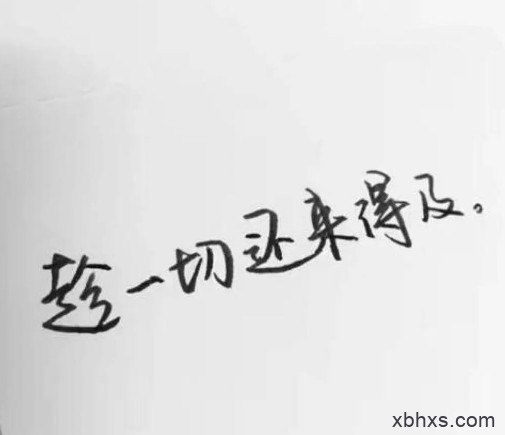 趁一切还来得及。
xbhxs.com